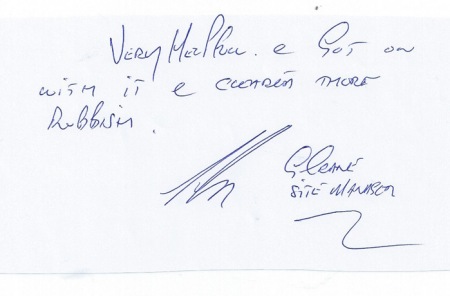 VERY HELPFUL. & GOT ON
WITH IT & CLEARED MORE
RUBBISH.
G CRANE
SITE MANAGER